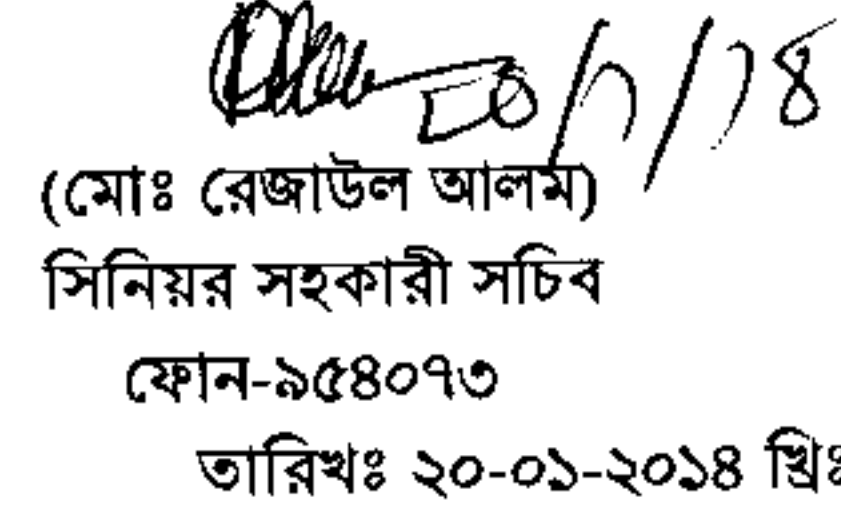 (মোঃ রেজাউল আলম)
সিনিয়র সহকারী সচিব
ফোন-৯৫৪০৭৩
তারিখঃ ২০-০১-২০১৪ খ্রিঃ